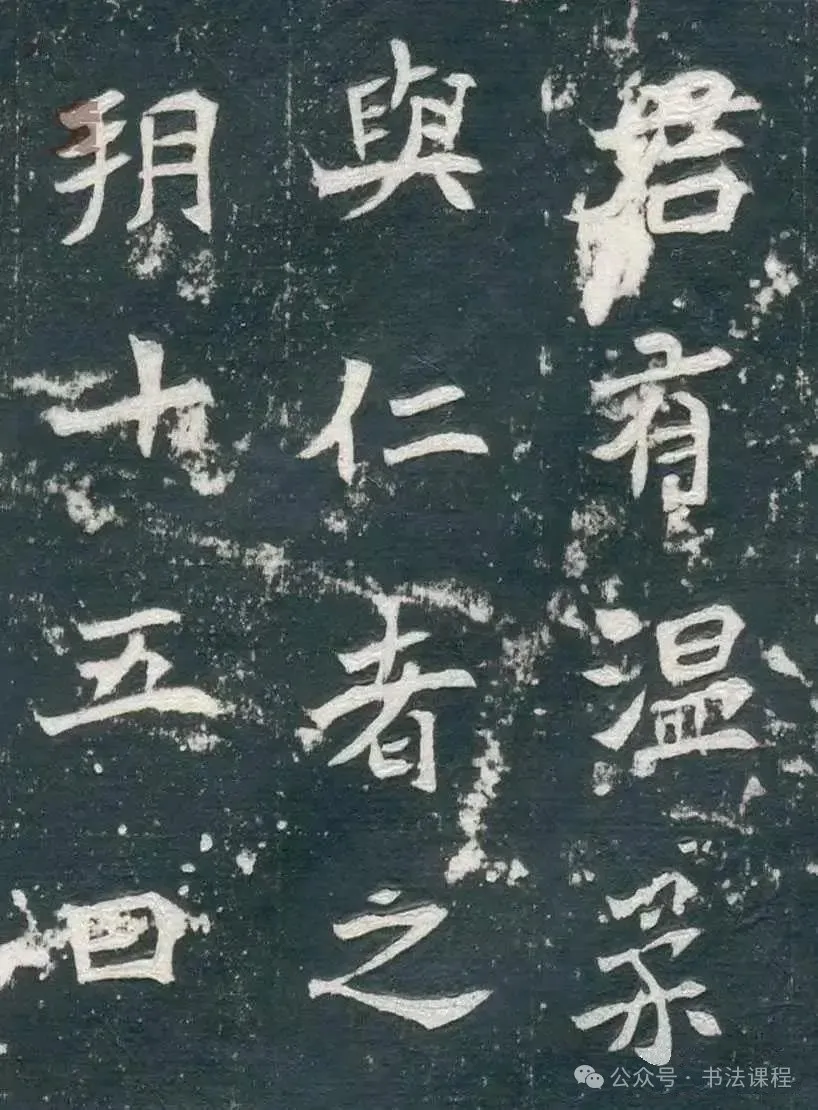 君有温柔
與仁者之
朔十五日
公众号·书法课程